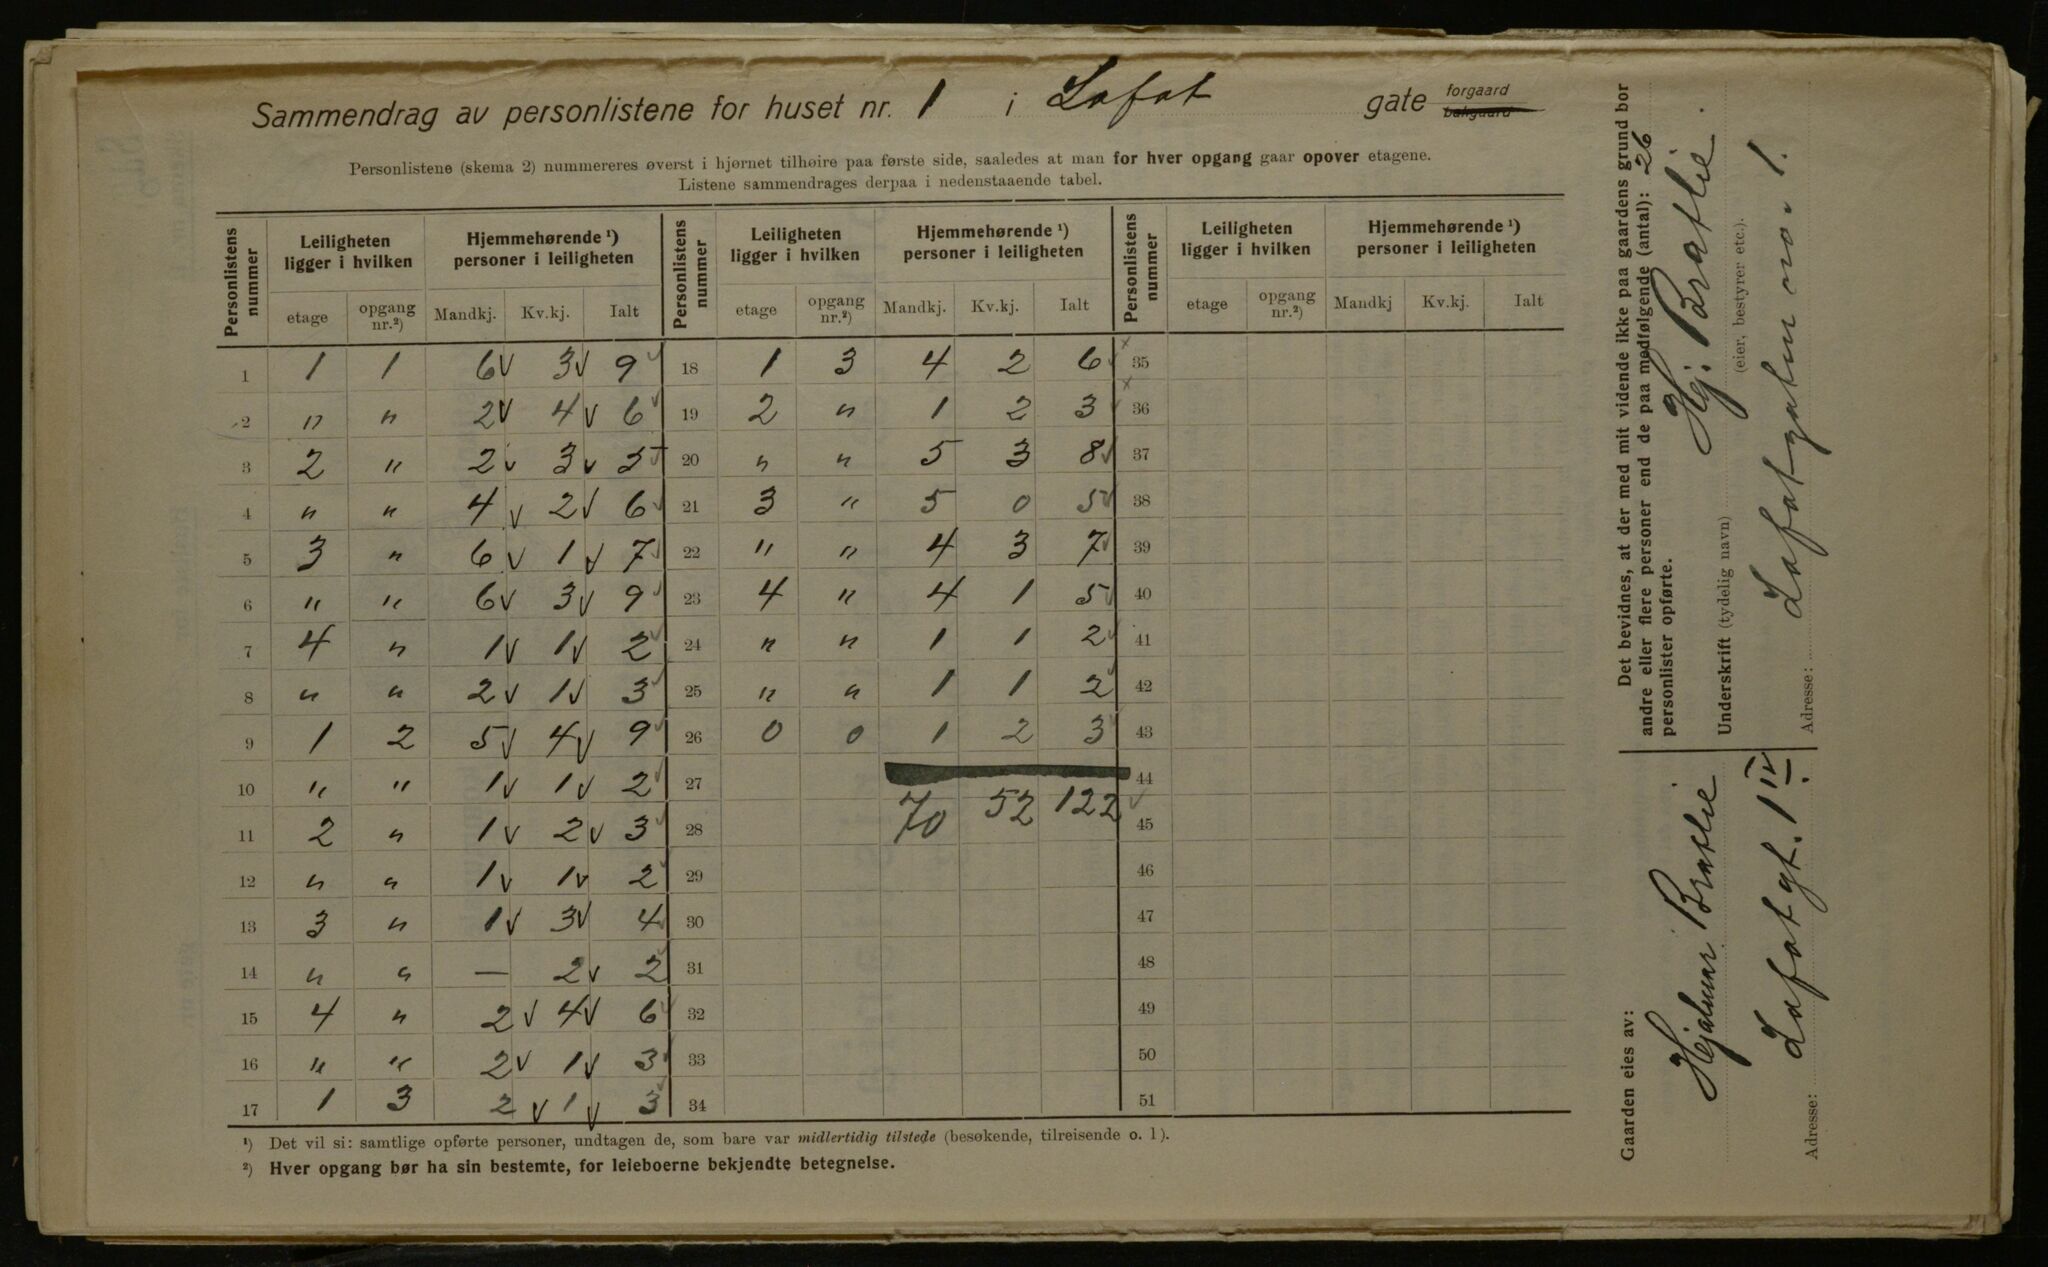 Sammendrag av personlistene for huset nr. 1 i Lofot gate forgaard bakgaard
Personlistene (skema 2) nummereres øverst i hjørnet tilhøire paa første side, saaledes at man for hver opgang gaar opover etagene.
Listene sammendrages derpaa i nedenstaaende tabel.
Personlistens nummer Leiligheten ligger i hvilken Hjemmehørende ¹) personer i leiligheten Personlistens nummer Leiligheten ligger i hvilken Hjemmehørende ¹) personer i leiligheten Personlistens nummer Leiligheten ligger i hvilken Hjemmehørende ¹) personer i leiligheten
etage opgang nr.²) Mandkj. Kv.kj. Ialt etage opgang nr.²) Mandkj. Kv.kj. Ialt etage opgang nr.²) Mandkj Kv.kj. Ialt
1 1 1 6 3 9 18 1 3 4 2 6 35
2 " " 2 4 6 19 2 " 1 2 3 36
3 2 " 2 3 5 20 " " 5 3 8 37
4 " " 4 2 6 21 3 " 5 0 5 38
5 3 " 6 1 7 22 " " 4 3 7 39
6 " " 6 3 9 23 4 " 4 1 5 40
7 4 " 1 1 2 24 " " 1 1 2 41
8 " " 2 1 3 25 " " 1 1 2 42
9 1 2 5 4 9 26 0 0 1 2 3 43
10 " " 1 1 2 27 44
11 2 " 1 2 3 28 70 52 122 45
12 " " 1 1 2 29 46
13 3 " 1 3 4 30 47
14 " " — 2 2 31 48
15 4 " 2 4 6 32 49
16 " " 2 1 3 33 50
17 1 3 2 1 3 34 51
¹) Det vil si: samtlige opførte personer, undtagen de, som bare var midlertidig tilstede (besøkende, tilreisende o. l).
²) Hver opgang bør ha sin bestemte, for leieboerne bekjendte betegnelse.
Det bevidnes, at der med mit vidende ikke paa gaardens grund bor
andre eller flere personer end de paa medfølgende (antal): 26
personlister opførte.
Hj. Bratlie.
Underskrift (tydelig navn)
(eier, bestyrer etc.).
Lofotgaten no. 1.
Adresse:
Gaarden eies av:
Hjalmar Bratlie
Lofotgt. 1 IV.
Adresse: